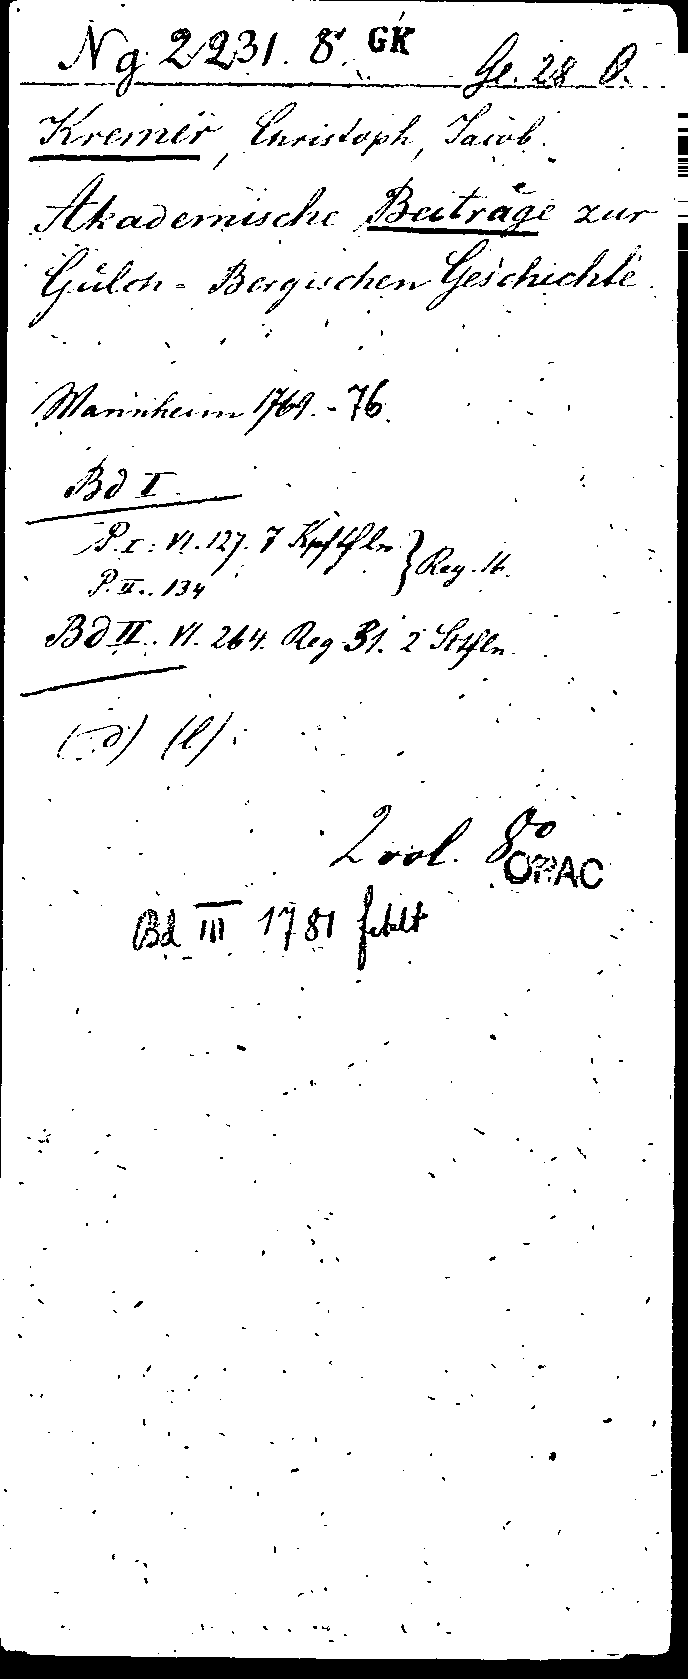 Ng 2231. 8°. GK Ge. 28 B.
Kremer, Christoph, Jacob.
Akademische Beiträge zur
Gülch-Bergischen Geschichte.
Mannheim 1769.-76.
Bd I.
P. I: VI. 127. 7 Kpftfln.
P. II. 134 } Reg. 16.
Bd II. VI. 264. Reg 31. 2 Sttfln.
(l).
2 vol. 8°
OPAC
Bd III 1781 fehlt